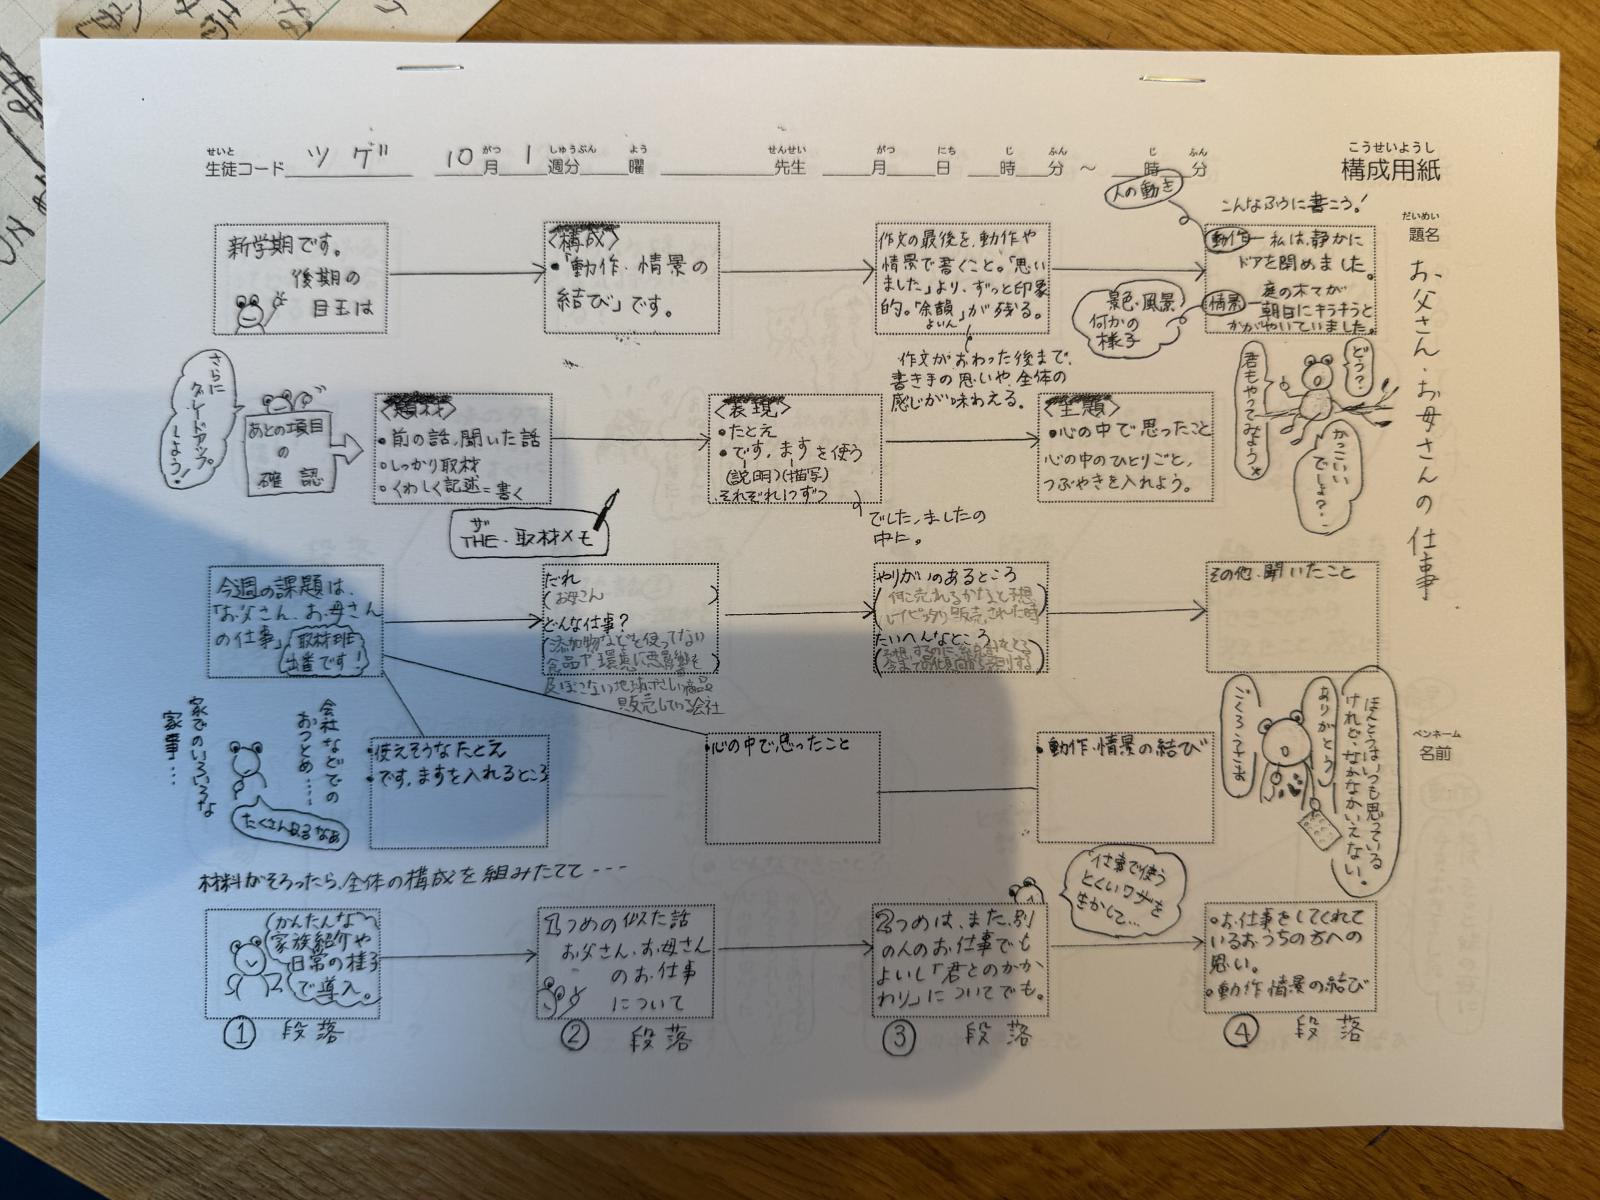 せいと がつ しゅうぶん よう せんせい がつ にち じ ふん じ ふん
生徒コード ツゲ 10月 1週分 曜 先生 月 日 時 分 ～ 時 分
こうせいようし
構成用紙
だいめい
題名
お父さん・お母さんの仕事
ペンネーム
名前
新学期です。
後期の
目玉は
〈構成〉
・「動作・情景の
結び」です。
作文の最後を、動作や
情景で書くこと。「思い
ました」より、ずっと印象
的。「余韻」が残る。
よいん
作文がおわった後まで、
書き手の思いや、全体の
感じが味わえる。
人の動き
こんなふうに書こう!
動作―私は、静かに
ドアを閉めました。
情景―庭の木々が
朝日にキラキラと
かがやいていました。
景色・風景
何かの
様子
さらに
グレードアップ
しよう!
あとの項目
の
確認
〈題材〉
・前の話、聞いた話
・しっかり取材
・くわしく記述=書く
〈表現〉
・たとえ
・です、ますを使う
(説明)(描写)
それぞれ1つずつ
でした、ましたの
中に。
〈主題〉
・心の中で思ったこと
心の中のひとりごと、
つぶやきを入れよう。
どう?
君もやってみよう
かっこいい
でしょ?
ザ
THE・取材メモ
今週の課題は、
「お父さん、お母さん
の仕事」
取材班
出番です!
だれ
(お母さん)
どんな仕事?
(添加物などを使ってない
食品や環境に悪影響を
及ぼさない地球にやさしい商品を
販売している会社
やりがいのあるところ
(何こ売れるかな」と予想
してピッタリ販売された時)
たいへんなところ
その他、聞いたこと
家でのいろいろな
家事…
会社などでの
おつとめ……
たくさんあるなあ
・使えそうなたとえ
・です、ますを入れるところ
・心の中で思ったこと
・動作・情景の結び
ほんとうはいつも思っている
けれど、なかなかいえない。
ありがとう
材料がそろったら、全体の構成を組みたてて----
かんたんな
家族紹介や
日常の様子
で導入。
① 段落
1つめの似た話
お父さん、お母さん
のお仕事
について
② 段落
2つめは、また、別
の人のお仕事でも
よいし「君とのかか
わり」についてでも。
③ 段落
仕事で使う
とくいワザを
生かして…
・お仕事をしてくれて
いるおうちの方への
思い。
・動作・情景の結び
④ 段落